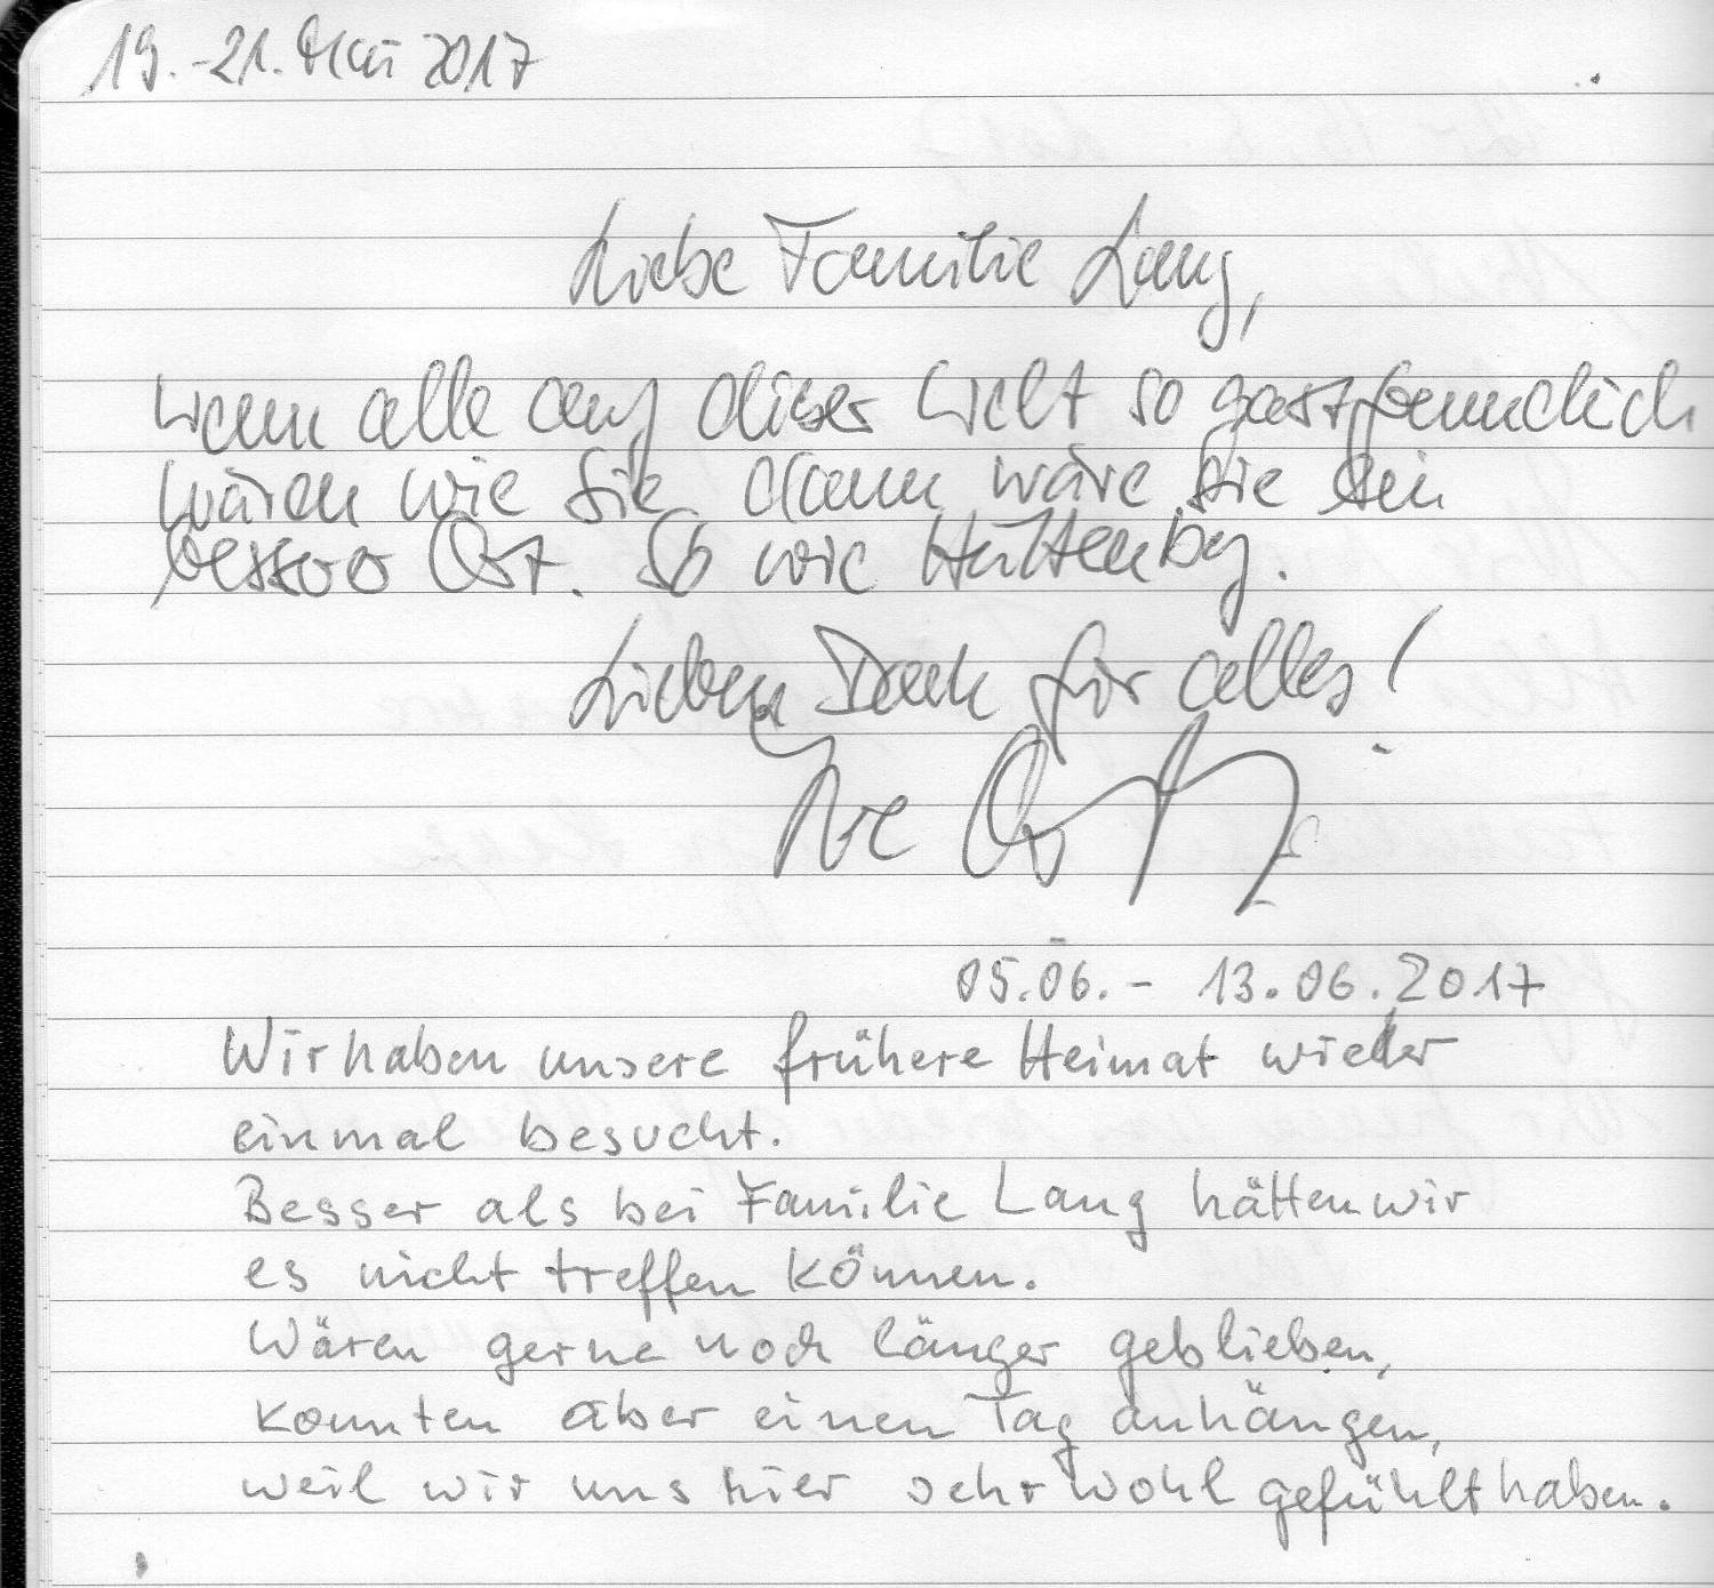 19.-21. Mai 2017
Liebe Familie Lang,
wenn alle auf dieser Welt so gastfreundlich
wären wie Sie, dann wäre sie ein
besserer Ort. So wie Hüttenbg.
Lieben Dank für alles!
05.06.- 13.06.2017
Wir haben unsere frühere Heimat wieder
einmal besucht.
Besser als bei Familie Lang hätten wir
es nicht treffen können.
Wären gerne noch länger geblieben,
konnten aber einen Tag anhängen,
weil wir uns hier sehr wohl gefühlt haben.